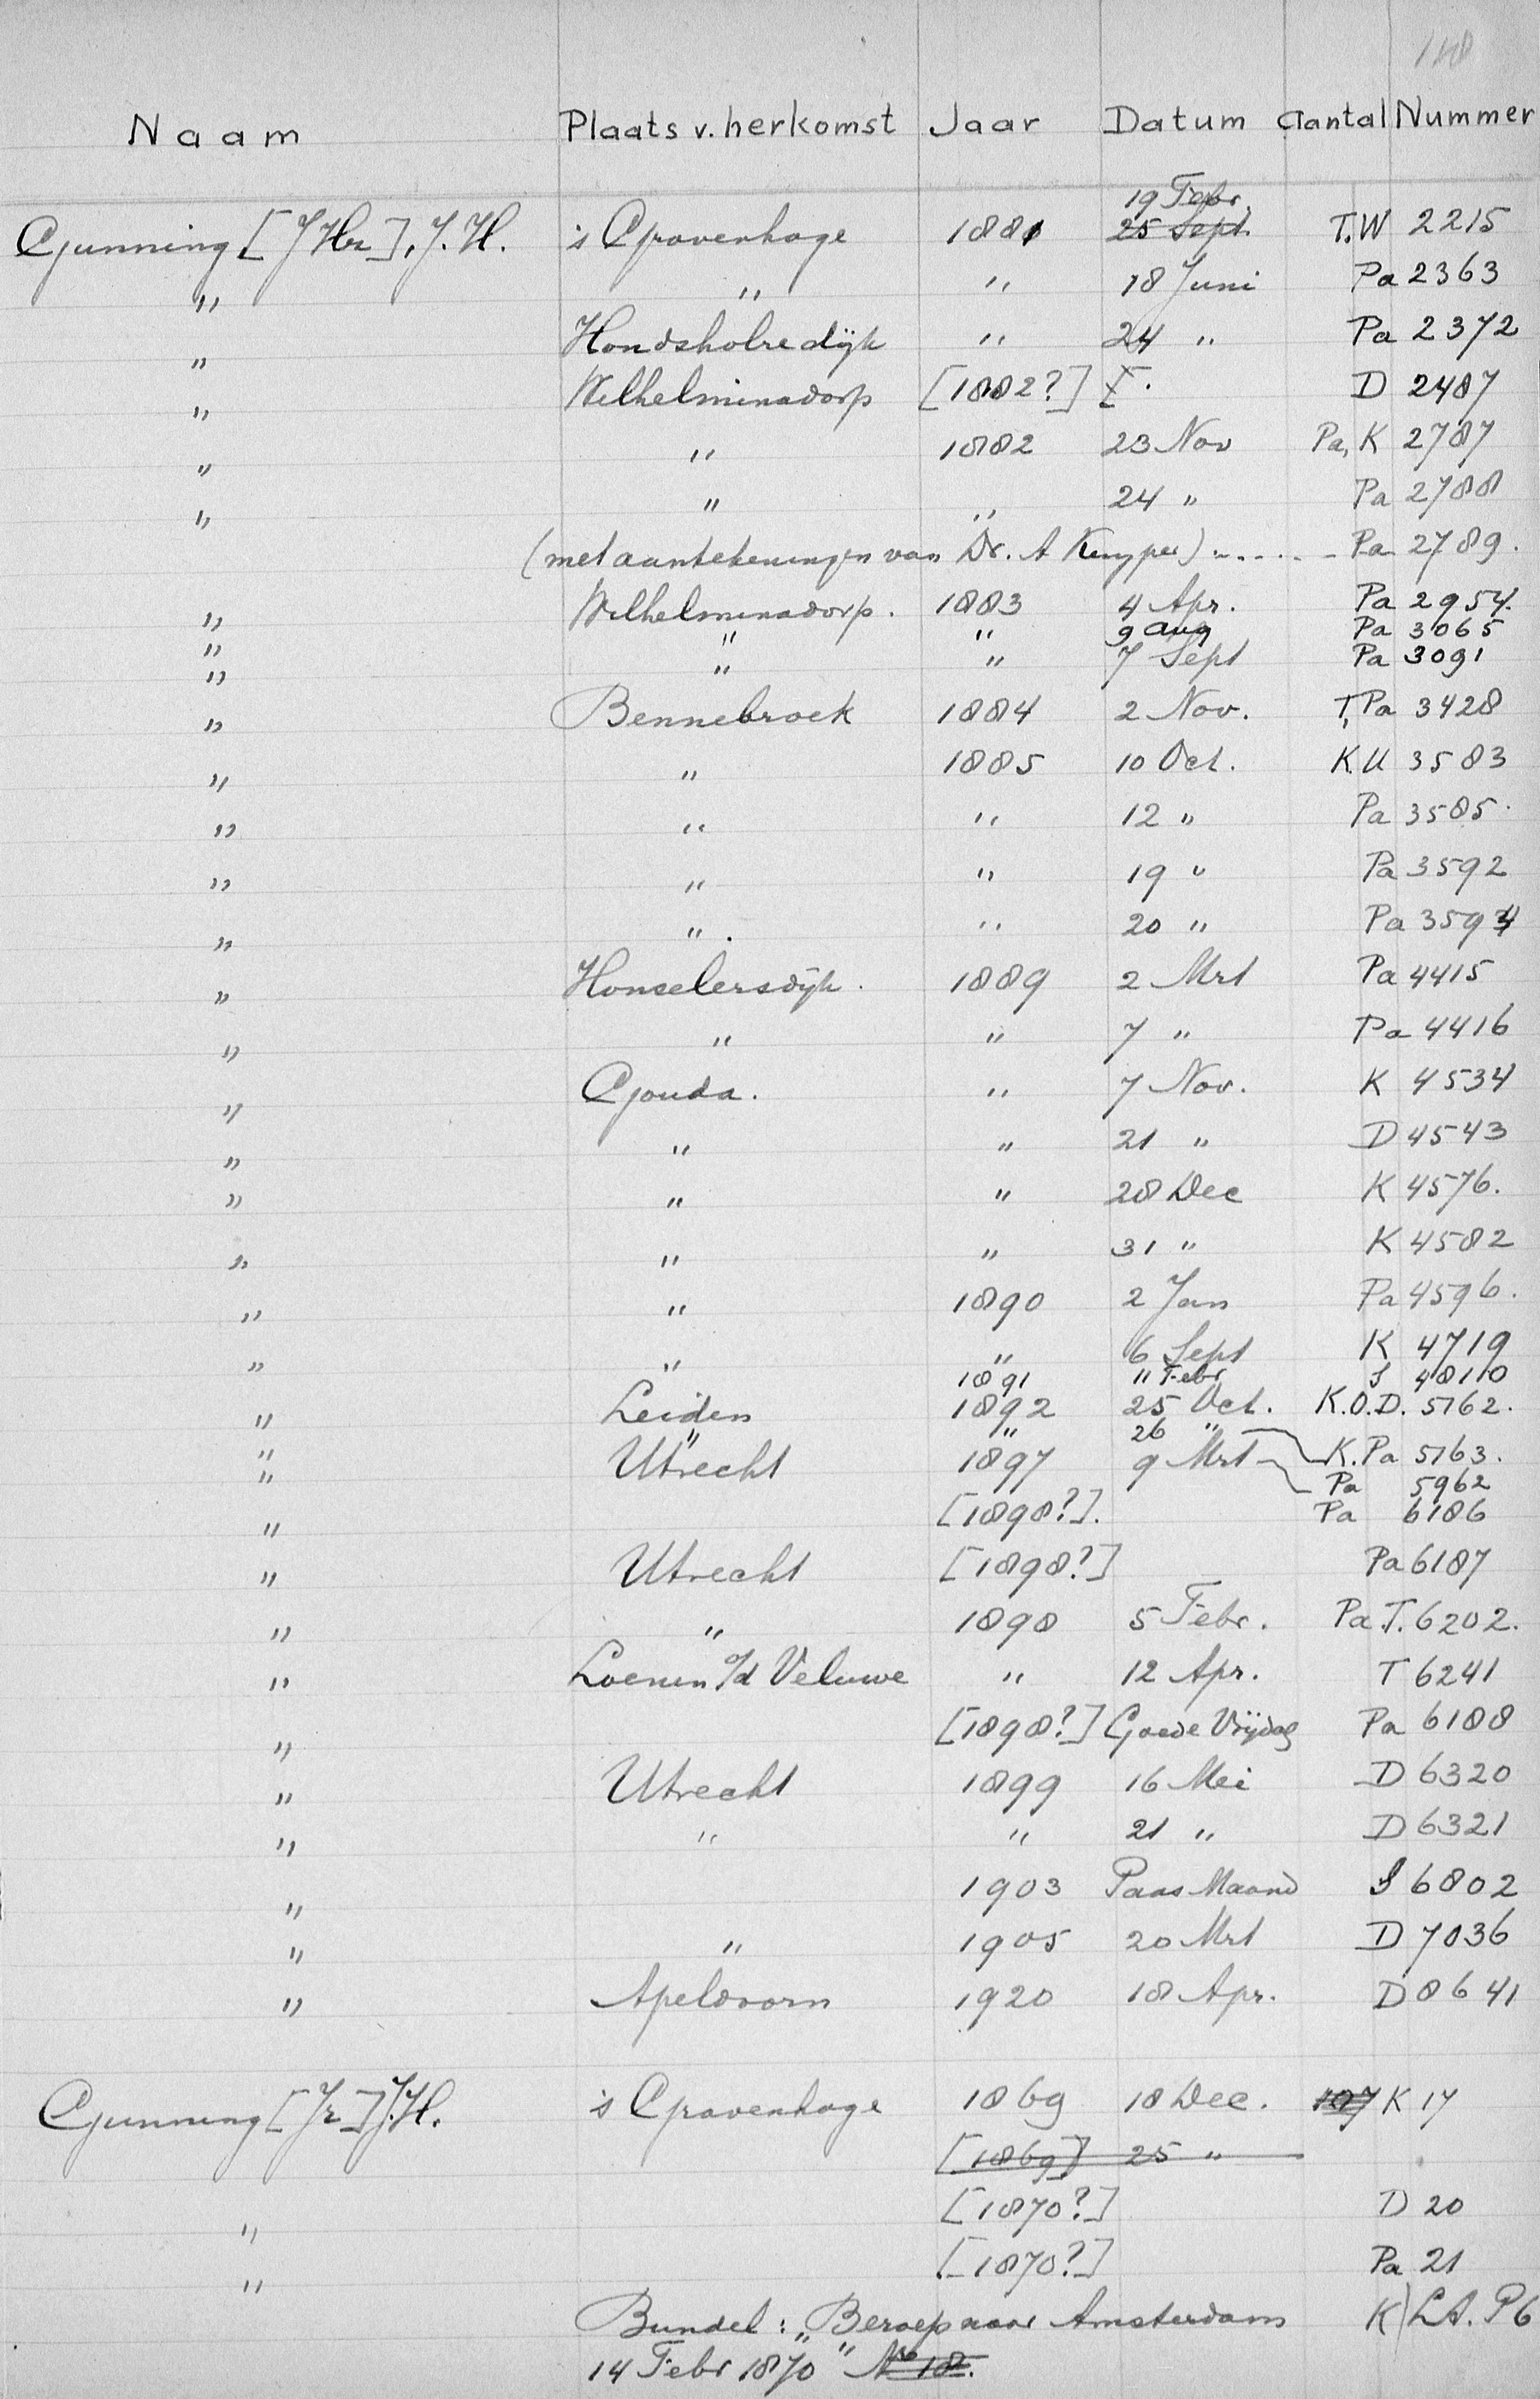 118
Naam Plaats v. herkomst Jaar Datum Aantal Nummer
19 Febr.
Gunning [JHz], J. H. 's Gravenhage 1881 25 Sept. T.W 2215
" " " 18 Juni Pa 2363
" Hondsholredijk " 24 " Pa 2372
" Wilhelminadorp [1882?] D 2487
" " 1882 23 Nov Pa, K 2787
" " " 24 " Pa 2788
(met aantekeningen van Dr. A Kuyper) ...... Pa 2789.
" Wilhelminadorp. 1883 4 Apr. Pa 2954.
" " " 9 Aug Pa 3065
" " " 7 Sept Pa 3091
" Bennebroek 1884 2 Nov. T, Pa 3428
" " 1885 10 Oct. K.U 3583
" " " 12 " Pa 3585.
" " " 19 " Pa 3592
" " . " 20 " Pa 3594
" Honselersdijk. 1889 2 Mrt Pa 4415
" " " 7 " Pa 4416
" Gouda. " 7 Nov. K 4534
" " " 21 " D 4543
" " " 28 Dec K 4576.
" " " 31 " K 4582
" " 1890 2 Jan Pa 4596.
" " " 6 Sept K 4719
1891 11 Febr S 48110
" Leiden 1892 25 Oct. K.O.D. 5762.
" " " 26 " K.Pa 5763.
" Utrecht 1897 9 Mrt Pa 5962
" [1898?]. Pa 6186
" Utrecht [1898?] Pa 6187
" " 1898 5 Febr. Pa T. 6202.
" Loenen o/d Veluwe " 12 Apr. T 6241
" [1898?] Goede Vrijdag Pa 6188
" Utrecht 1899 16 Mei D 6320
" " " 21 " D 6321
" 1903 Paas Maand S 6802
" " 1905 20 Mrt D 7036
" Apeldoorn 1920 18 Apr. D 8641
Gunning [Jr] J.H. 's Gravenhage 1869 18 Dec. 107 K 17
[1869] 25 "
" [1870?] D 20
" [1870?] Pa 21
Bundel: „Beroep naar Amsterdam K) LA. P6
14 Febr 1870" No 18.